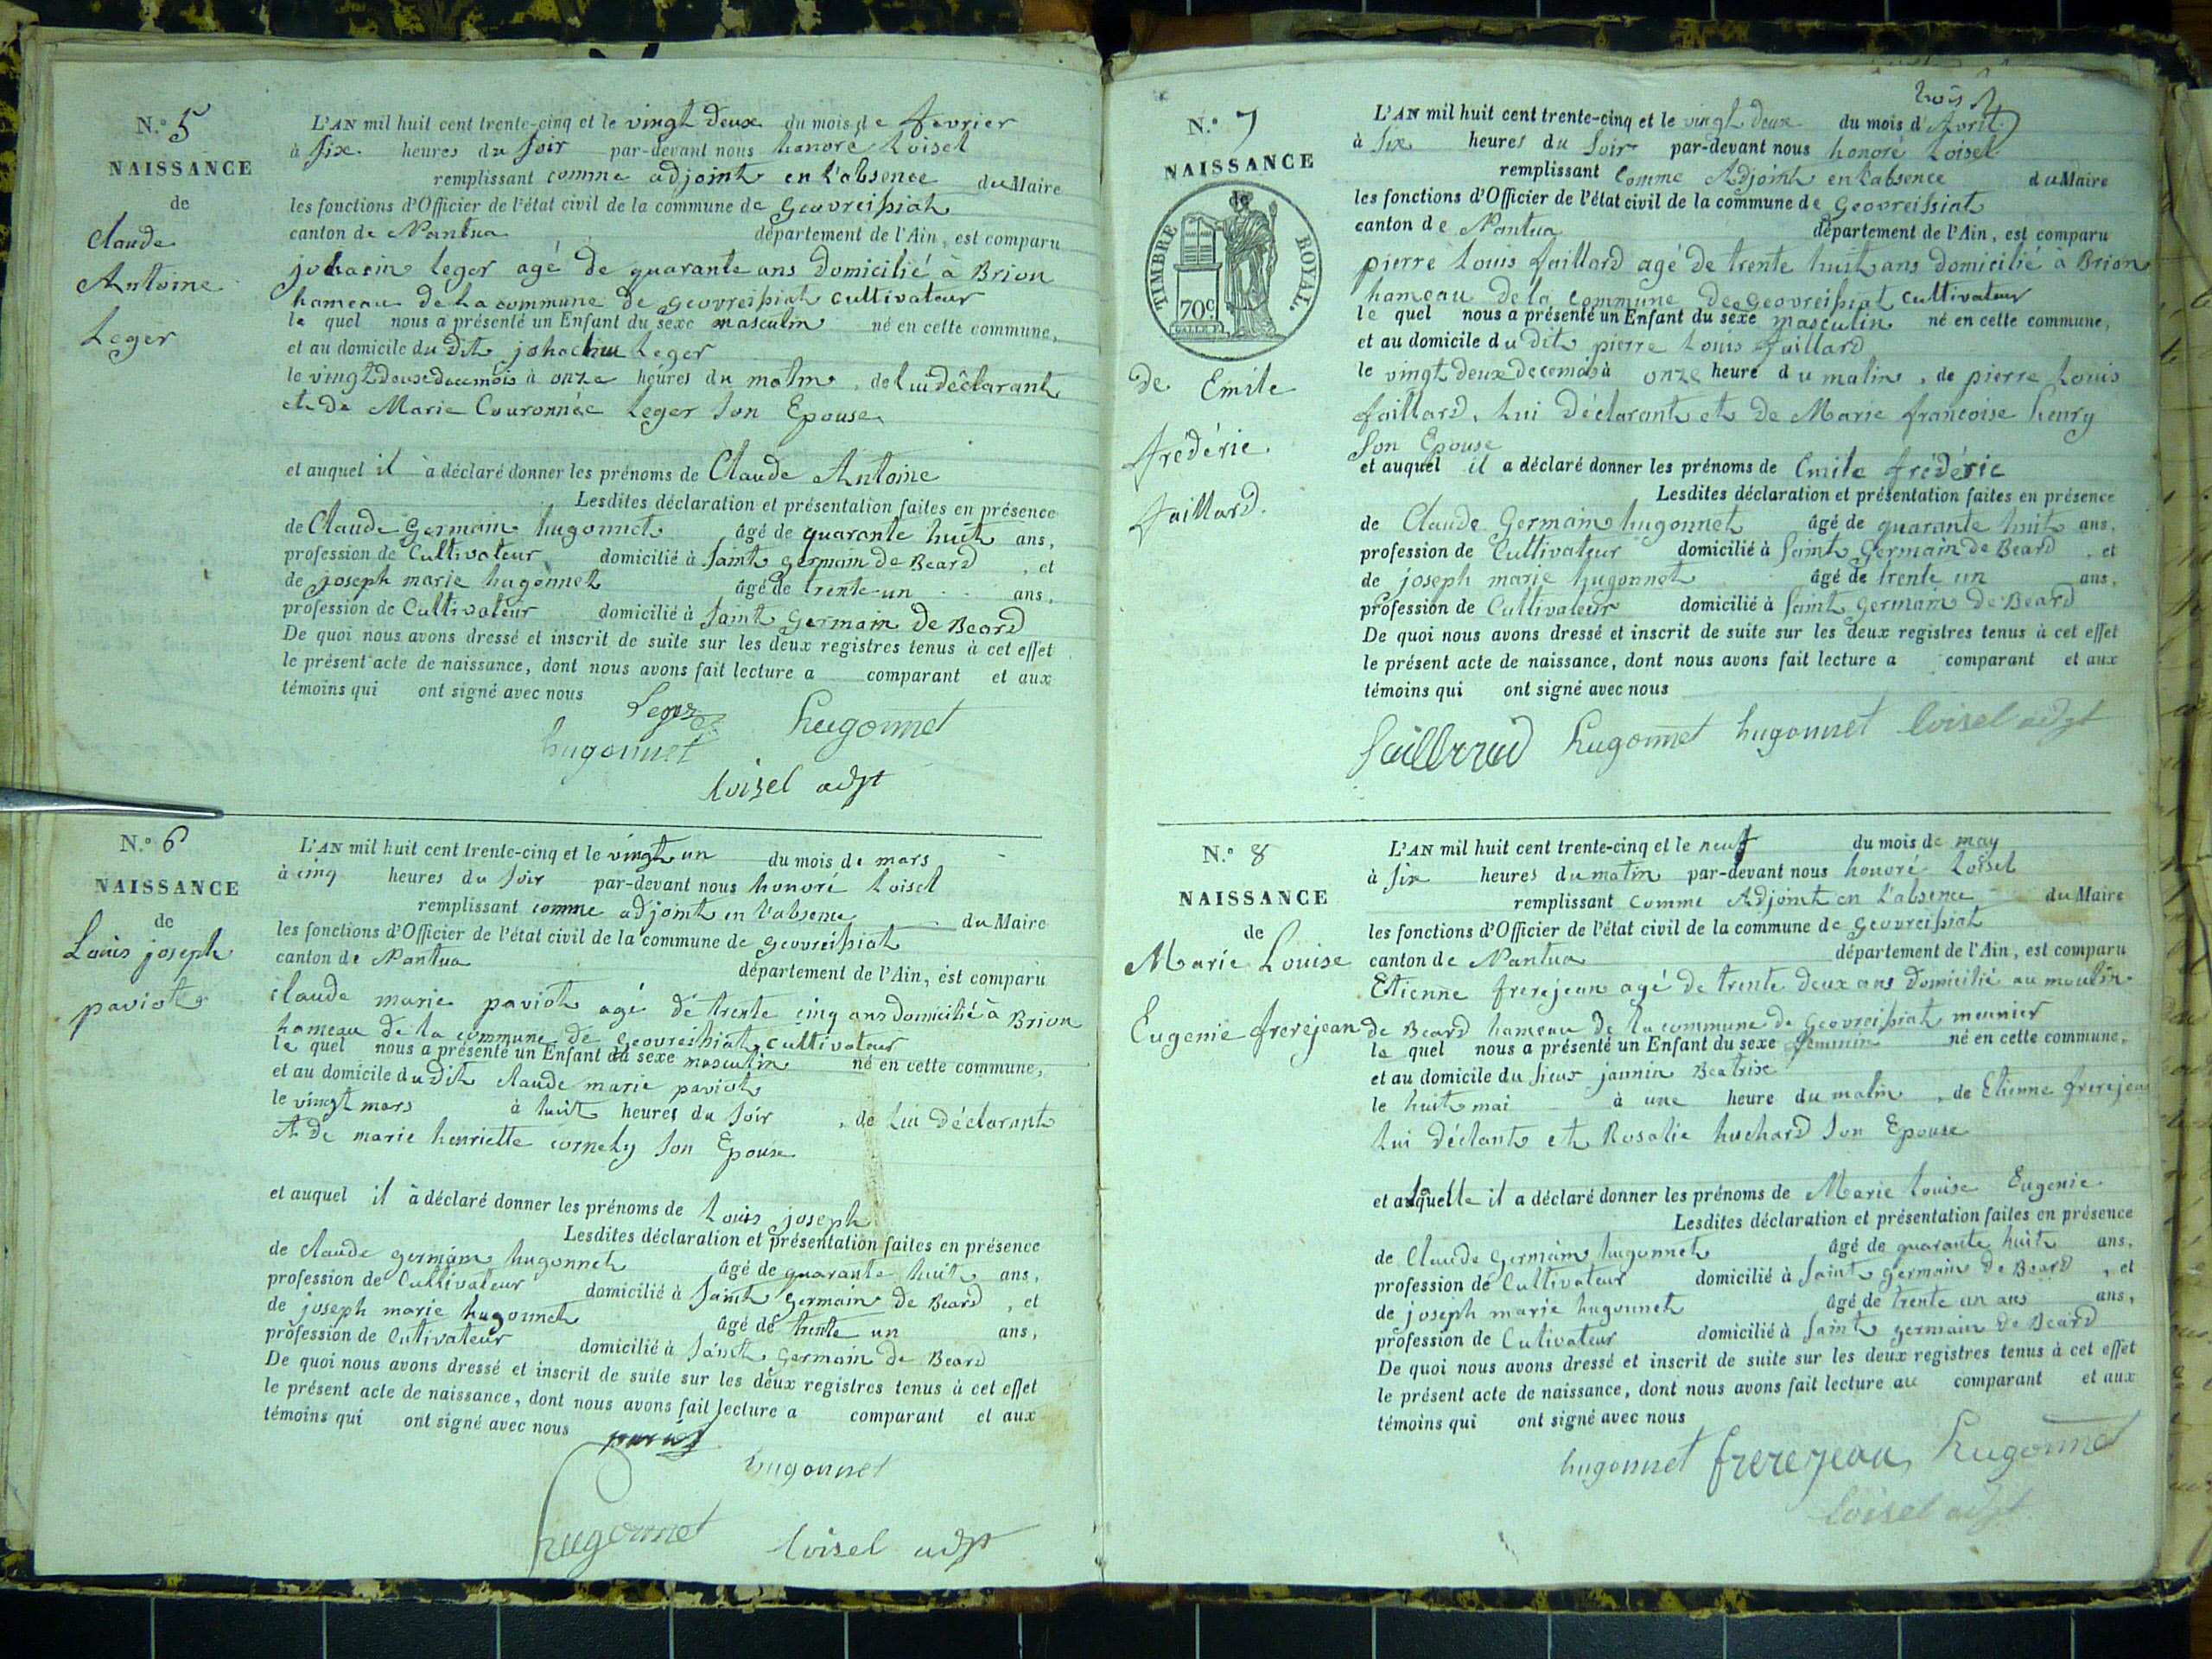 N.o 5
NAISSANCE
de
Claude
Antoine
Leger
L'AN mil huit cent trente-cinq et le vingt deux du mois de fevrier
à six heures du soir par-devant nous honoré Loisel
remplissant comme adjoint en l'absence du Maire
les fonctions d'Officier de l'état civil de la commune de Geovreissiat
canton de Nantua département de l'Ain, est comparu
leger agé de quarante ans domicilié à Brion
hameau de la commune de geovreissiat cultivateur
le quel nous a présenté un Enfant du sexe masculin né en cette commune,
et au domicile du dit Leger
le vingt deux de ce mois à onze heures du matin, de lui déclarant
et de Marie Couronnée Leger son Epouse
et auquel il a déclaré donner les prénoms de Claude Antoine
Lesdites déclaration et présentation faites en présence
de Claude Germain hugonnet âgé de quarante huit ans,
profession de Cultivateur domicilié à Saint germain de Beard, et
de joseph marie hugonnet âgé de trente-un ans,
profession de Cultivateur domicilié à Saint Germain de Beard
De quoi nous avons dressé et inscrit de suite sur les deux registres tenus à cet effet
le présent acte de naissance, dont nous avons fait lecture a comparant et aux
témoins qui ont signé avec nous
Leger hugonnet
hugonnet
loisel adjt
N.o 6
NAISSANCE
de
Louis joseph
paviot
L'AN mil huit cent trente-cinq et le vingt un du mois de mars
à cinq heures du soir par-devant nous honoré Loisel
remplissant comme adjoint en l'absence du Maire
les fonctions d'Officier de l'état civil de la commune de geovreissiat
canton de Nantua département de l'Ain, est comparu
claude marie paviot agé de trente cinq ans domicilié à Brion
hameau de la commune de Geovreissiat, cultivateur
le quel nous a présenté un Enfant du sexe masculin né en cette commune,
et au domicile du dit claude marie paviot
le vingt mars à huit heures du soir, de lui déclarant
et de marie henriette cornety son Epouse
et auquel il a déclaré donner les prénoms de Louis joseph
Lesdites déclaration et présentation faites en présence
de claude germain hugonnet âgé de quarante huit ans,
profession de Cultivateur domicilié à Saint Germain de Beard, et
de joseph marie hugonnet âgé de trente un ans,
profession de Cutivateur domicilié à Saint Germain de Beard
De quoi nous avons dressé et inscrit de suite sur les deux registres tenus à cet effet
le présent acte de naissance, dont nous avons fait lecture a comparant et aux
témoins qui ont signé avec nous
hugonnet
hugonnet loisel adjt
N.o 7
NAISSANCE
TIMBRE ROYAL.
70c
de Emile
frédéric
faillard.
trois
L'AN mil huit cent trente-cinq et le vingt deux du mois d'Avril
à six heures du soir par-devant nous honoré Loisel
remplissant Comme Adjoint en l'absence du Maire
les fonctions d'Officier de l'état civil de la commune de Geovreissiat
canton de Nantua département de l'Ain, est comparu
pierre Louis faillard agé de trente huit ans domicilié à Brion
hameau de la commune de Geovreissiat cultivateur
le quel nous a présenté un Enfant du sexe masculin né en cette commune,
et au domicile du dit pierre Louis faillard
le vingt deux de ce mois à onze heure du matin, de pierre Louis
faillard, Lui déclarant et de Marie francoise henry
son Epouse
et auquel il a déclaré donner les prénoms de Emile frédéric
Lesdites déclaration et présentation faites en présence
de Claude Germain hugonnet âgé de quarante huit ans,
profession de Cultivateur domicilié à Saint Germain de Beard, et
de joseph marie hugonnet âgé de trente un ans,
profession de Cultivateur domicilié à Saint Germain de Beard
De quoi nous avons dressé et inscrit de suite sur les deux registres tenus à cet effet
le présent acte de naissance, dont nous avons fait lecture a comparant et aux
témoins qui ont signé avec nous
faillard hugonnet hugonnet loisel adjt
N.o 8
NAISSANCE
de
Marie Louise
Eugenie frerejean
L'AN mil huit cent trente-cinq et le neuf du mois de may
à six heures du matin par-devant nous honoré Loisel
remplissant Comme Adjoint en l'absence du Maire
les fonctions d'Officier de l'état civil de la commune de Geovreissiat
canton de Nantua département de l'Ain, est comparu
Etienne frerejean agé de trente deux ans domicilié au moulin
de Beard hameau de la commune de Geovreissiat meunier
le quel nous a présenté un Enfant du sexe feminin né en cette commune,
et au domicile du sieur jannin Beatrix
le huit mai à une heure du matin, de Etienne frerejean
Lui déclant et Rosalie huchard son Epouse
et a laquelle il a déclaré donner les prénoms de Marie Louise Eugenie
Lesdites déclaration et présentation faites en présence
de Claude Germain hugonnet âgé de quarante huit ans,
profession de Cultivateur domicilié à Saint Germain de Beard, et
de joseph marie hugonnet âgé de trente un ans ans,
profession de Cutivateur domicilié à Saint germain de Beard
De quoi nous avons dressé et inscrit de suite sur les deux registres tenus à cet effet
le présent acte de naissance, dont nous avons fait lecture au comparant et aux
témoins qui ont signé avec nous
hugonnet frerejean hugonnet
loisel adjt